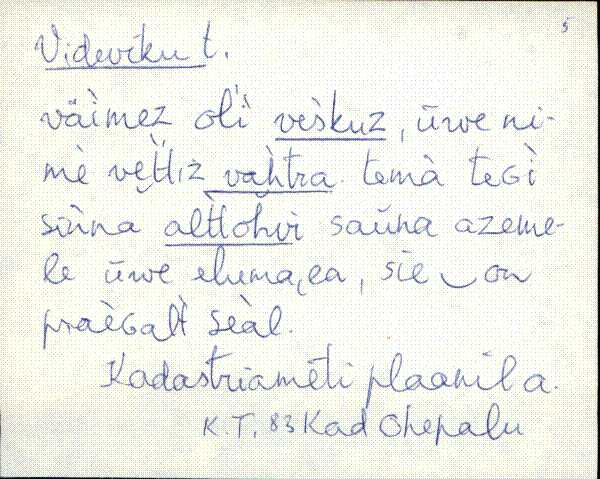 5
Videviku t.
väìmez olì vèskuz, ūwe ni-
mè vettiz vahtra. temà teGì
siìna alttohvi saūna azeme-
le ūwe elumaea, sie on
praèGalt seàl.
Kadastriaméti plaanil a.
K.T. 83 Kad Ohepalu